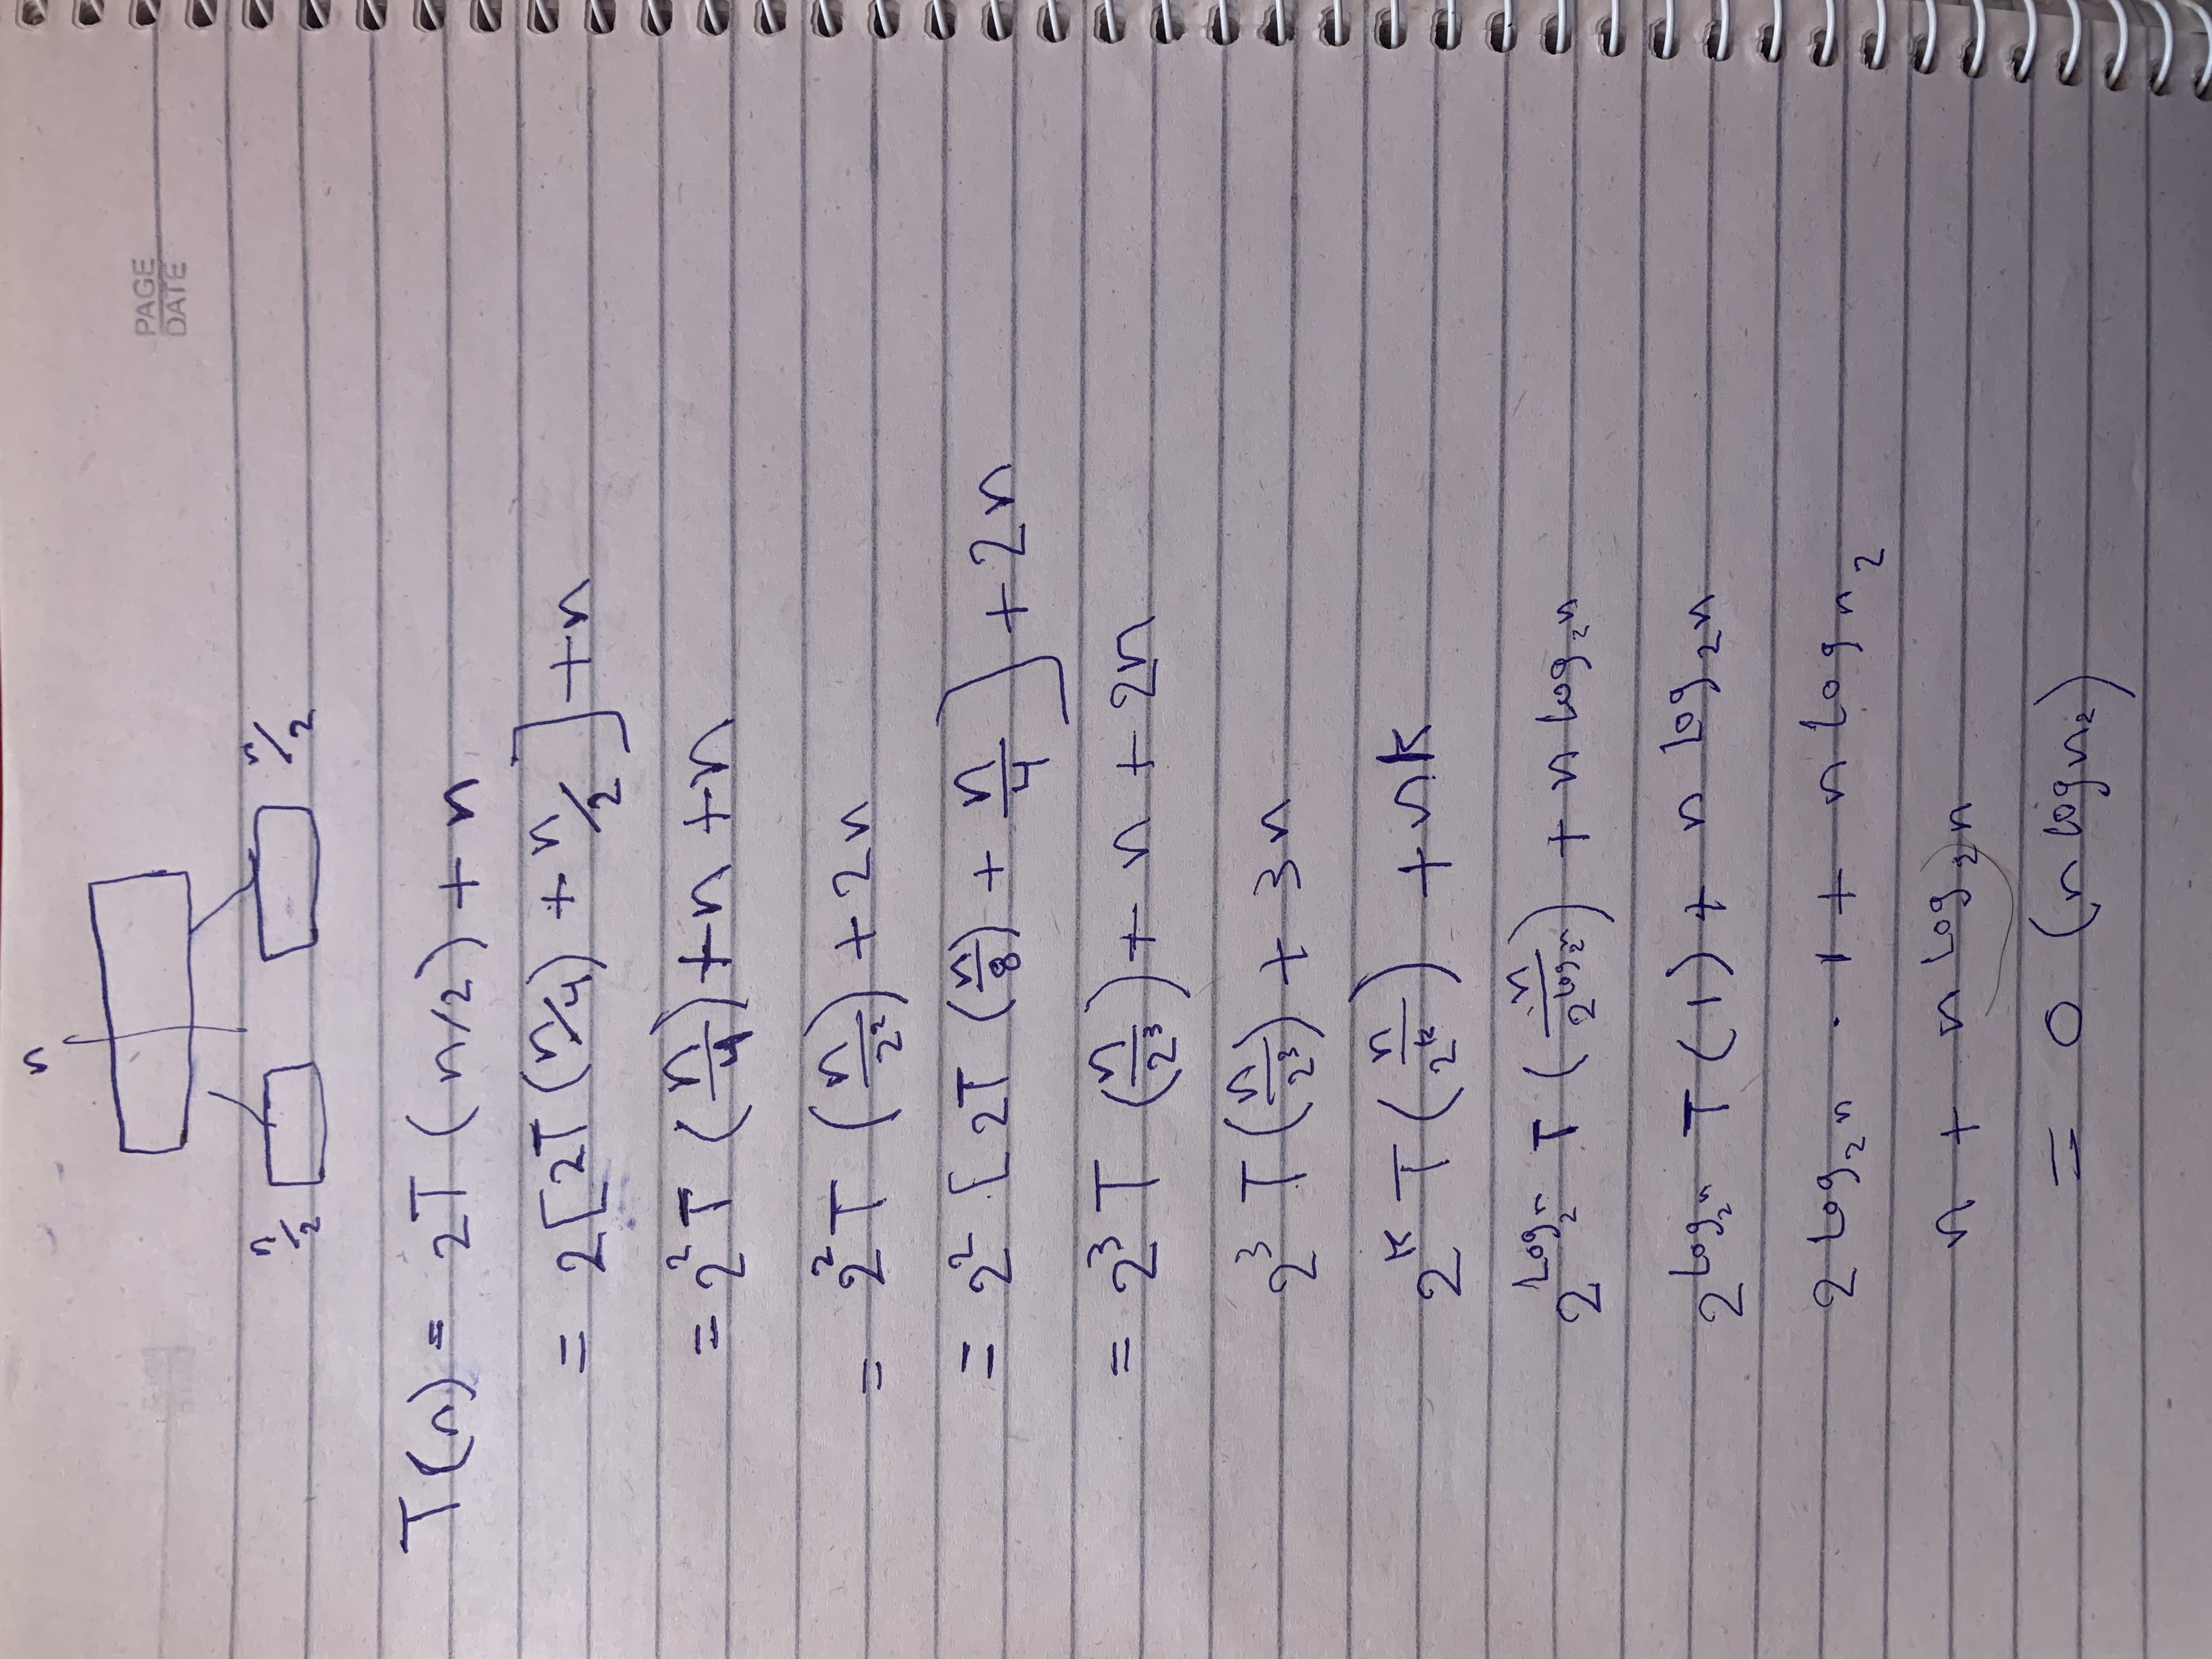 n
PAGE
DATE
n/2 n/2
T(n) = 2T (n/2) + n
= 2[2T(n/4) + n/2] + n
= 2² T (n/4) + n + n
= 2² T (n/2²) + 2n
= 2² [2T (n/8) + n/4] + 2n
= 2³ T (n/2³) + n + 2n
2³ T (n/2³) + 3n
2^k T (n/2^k) + nk
2^(Log₂n) T (n/2^(Log₂n)) + n Log₂n
2^(Log₂n) T(1) + n Log₂n
2 Log₂n . 1 + n Log n₂
n + n Log₂n
= O (n log n₂)